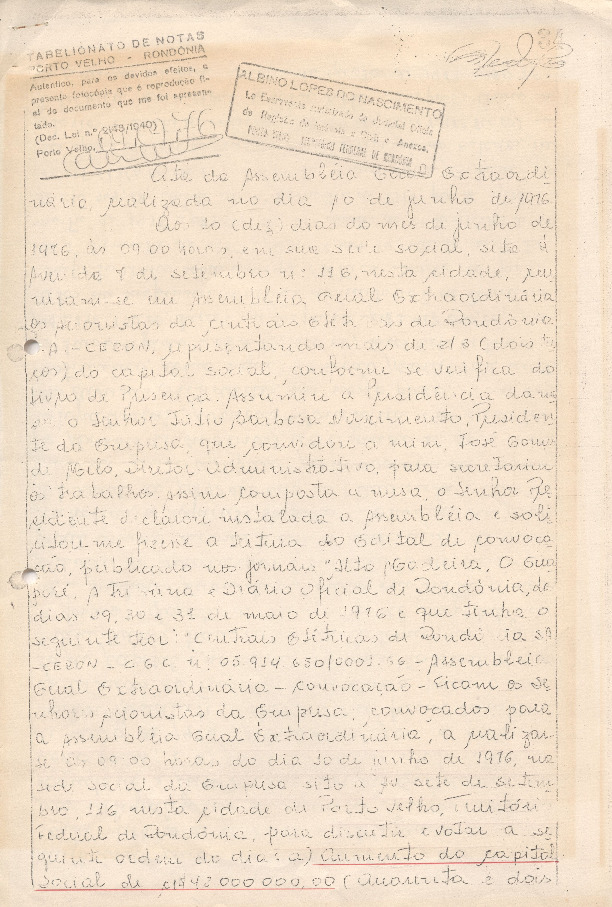 34
TABELIONATO DE NOTAS
PORTO VELHO - RONDÔNIA
Autentico, para os devidos efeitos, a
presente fotocópia que é reprodução fi-
el do documento que me foi apresen-
tado.
(Dec. Lei n.º 2148/1940)
Porto Velho,
ALBINO LOPES DO NASCIMENTO
Ata da Assembléia Geral Extraordi
nária, realizada no dia 10 de junho de 1976.
Aos 10 (dez) dias do mês de junho de
1976, às 09:00 horas, em sua sede social, sita à
Avenida 7 de setembro nº 116, nesta cidade, reu
niram-se em Assembléia Geral Extraordinária
os acionistas da Centrais Elétricas de Rondônia
S.A. - CERON, representando mais de 2/3 (dois ter
ços) do capital social, conforme se verifica do
Livro de Presença. Assumiu a Presidência
o Senhor Júlio Barbosa Nascimento, Presiden
te da Empresa, que convidou a mim, José Gomes
de Melo, Diretor Administrativo, para secretariar
os trabalhos. Assim composta a mesa, o Senhor Pre
sidente declarou instalada a Assembléia e soli
citou-me fizesse a leitura do Edital de convoca
ção, publicado nos jornais "Alto Madeira, O Gua
poré, A Tribuna e Diário Oficial de Rondônia, de
dias 29, 30 e 31 de maio de 1976 e que tinha o
seguinte teor: "Centrais Elétricas de Rondônia SA
- CERON - C.G.C. nº 05.914.650/0001-66 - Assembléia
Geral Extraordinária - Convocação - Ficam os Se
nhores acionistas da Empresa, convocados para
a Assembléia Geral Extraordinária, a realizar
se às 09:00 horas do dia 10 de junho de 1976, na
sede social da Empresa sito à Av. sete de setem
bro, 116 nesta cidade de Porto Velho, Território
Federal de Rondônia, para discutir e votar a se
guinte ordem do dia: a) Aumento do capital
social de Cr$ 42.000.000,00 (Quarenta e dois